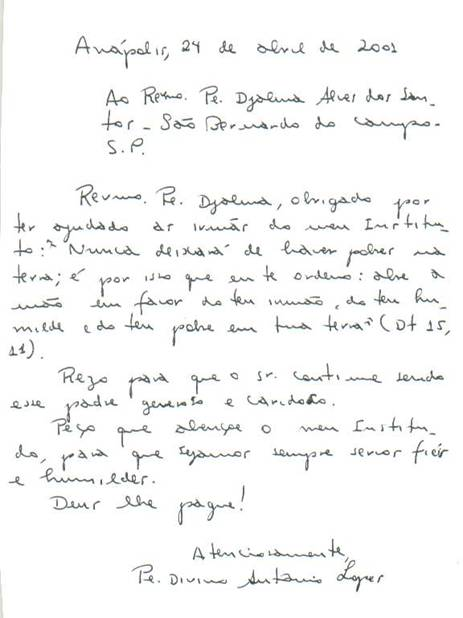 Anápolis, 24 de abril de 2001
Ao Revmo. Pe. Djalma Alves dos San-
tos - São Bernardo do Campo -
S.P.
Revmo. Pe. Djalma, obrigado por
ter ajudado as irmãs do meu Institu-
to: "Nunca deixará de haver pobres na
terra; é por isto que eu te ordeno: abre a
mão em favor do teu irmão, do teu hu-
milde e do teu pobre em tua terra" (Dt 15,
11).
Rezo para que o sr. continue sendo
esse padre generoso e caridoso.
Peço que abençoe o meu Institu-
do, para que sejamos sempre servos fiéis
e humildes.
Deus lhe pague!
Atenciosamente,
Pe. Divino Antônio Lopes